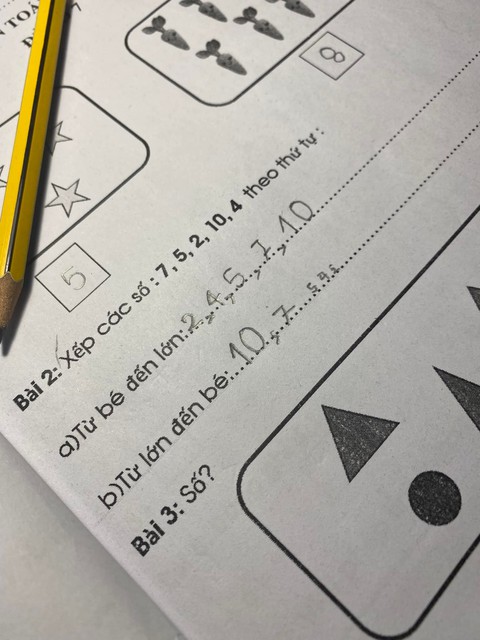 8
5
Bài 2: Xếp các số : 7, 5, 2, 10, 4 theo thứ tự :
a)Từ bé đến lớn: 2, 4, 5, 7, 10
b)Từ lớn đến bé: 10, 7
Bài 3: Số?